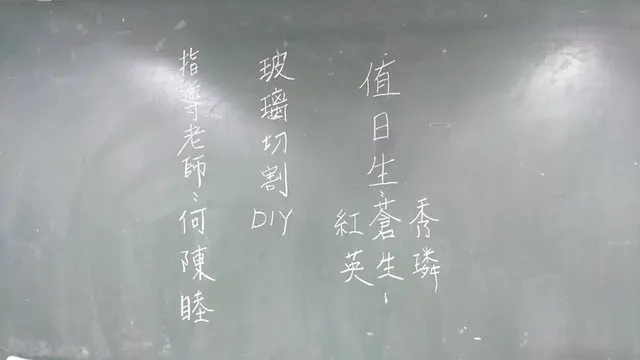 值日生：蒼生、
秀璘
紅英
玻璃切割DIY
指導老師：何陳睦